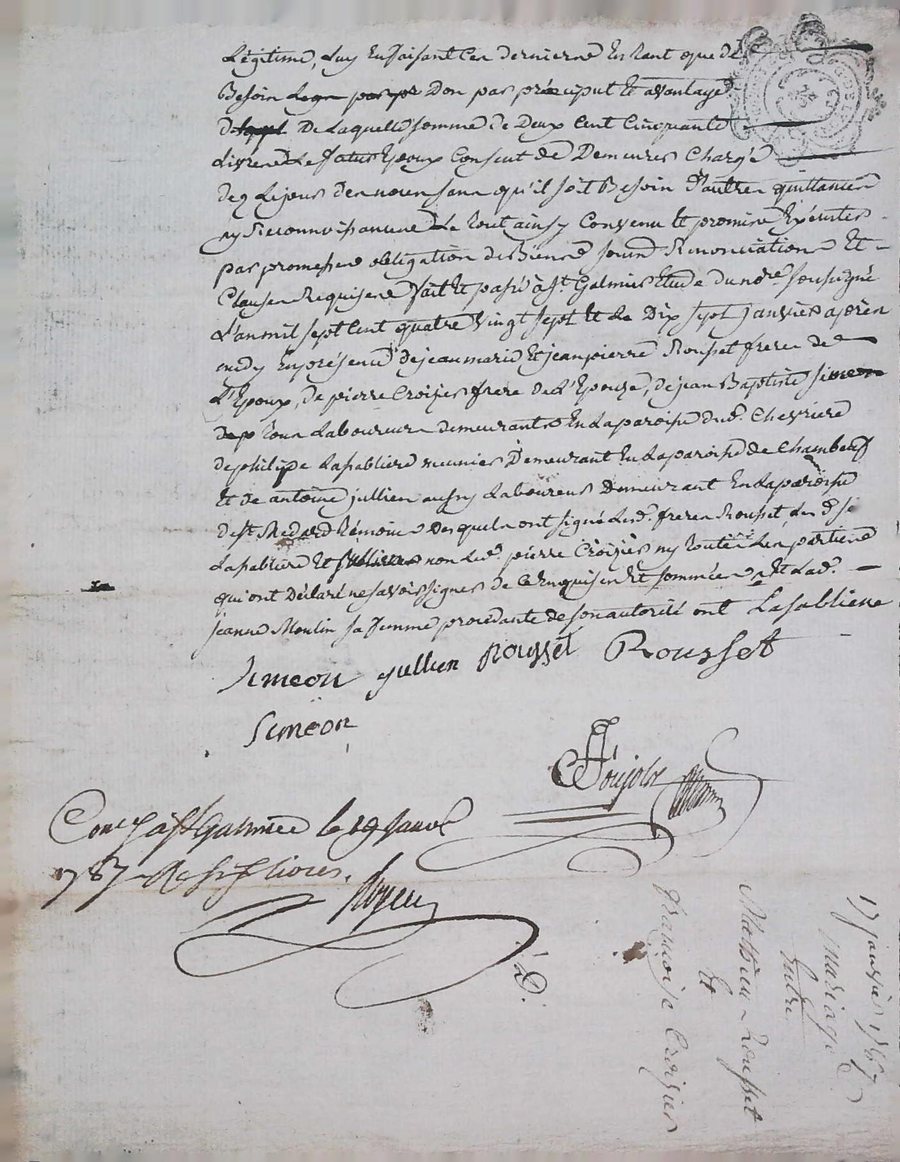 Légitime, luy En faisant Ces derniers En tant que de
Besoin Don par préciput Et avantage
De Laquelle somme de Deux Cent Cinquante
Livres Le futur Epoux Consent de Demeurer Chargé
dez Lejour des noces sans qu'il soit Besoin D'autres quittances
ny Reconnoissances Le Tout ainsy Convenu Et promis Exécuter
par promesses obligation de Biens soumis Renonciations Et
Clauses Requises fait Et passé à St. Galmier Etude du nore. soussigné
L'an mil sept Cent quatre vingt sept Et Le Dix sept janvier après
midy En présence de jean marie Et jean pierre Rousset freres de
L'Epoux, de pierre Croizier frere de L'Epouze, de jean Baptiste simeon
Tous Laboureurs demeurants En La paroisse de Chevrieres
de philipe Lasabliere meunier Demeurant En La paroisse de Chambeuf
Et de antoine jullien aussy Laboureur Demeurant En La paroisse
de St. Médard Témoins Desquels ont signé Lesd. freres Rousset, Les d. si
Lasabliere Et jullien non Led. pierre Croizier ny Toutes Les parties
qui ont Déclaré ne savoir signer de Ce Enquises Et sommées Et Lad.
jeanne Moulin sa femme procédante de son autorité ont Lasabliere
simeon jullien Rousset Rousset
Simeon
Poujols
Conlé à St Galmier le 19 janv
1787 Rs livres.
D.
17 janvier 1787
mariage
Entre
Mathieu Rousset
Et
françoise Croizier